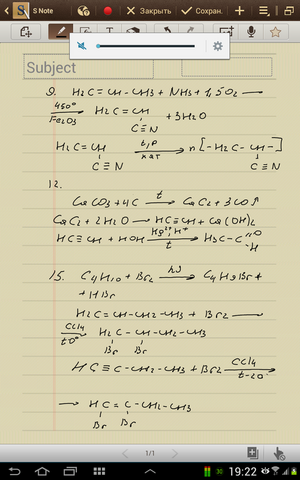 S Note
Закрыть
Сохран.
Subject
9. H₂C=CH-CH₃ + NH₃ + 1,5O₂ —
450° Fe₂O₃ → H₂C=CH + 3H₂O
C≡N
H₂C=CH t,p кат → n[-H₂C-CH-]
C≡N C≡N
12.
CaCO₃+4C t → CaC₂+3CO↑
CaC₂+2H₂O → HC≡CH+Ca(OH)₂
HC≡CH+HOH Hg²⁺,H⁺ t → H₃C-C =O -H
15. C₄H₁₀+Br₂ hν → C₄H₉Br+
+HBr
H₂C=CH-CH₂-CH₃+Br₂ —
CCl₄ t0° → H₂C-CH-CH₂-CH₃
Br Br
HC≡C-CH₂-CH₃+Br₂ CCl₄ t-20° →
→ HC=C-CH₂-CH₃
Br Br
1/1
30
19:22